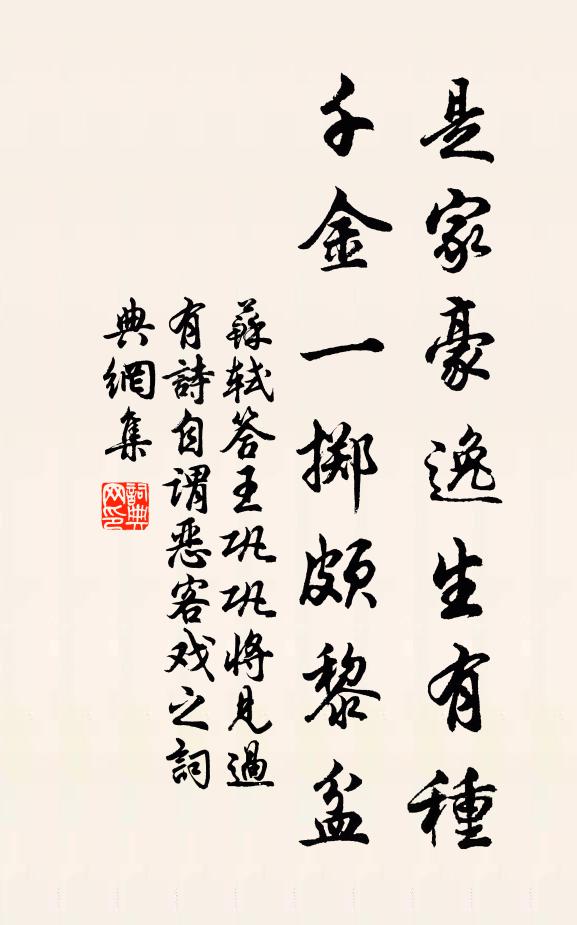 是家豪逸生有種
千金一擲頗黎盆
蘇軾答王巩巩將見過
有詩自謂恶客戏之詞
典網集
詞典
网印